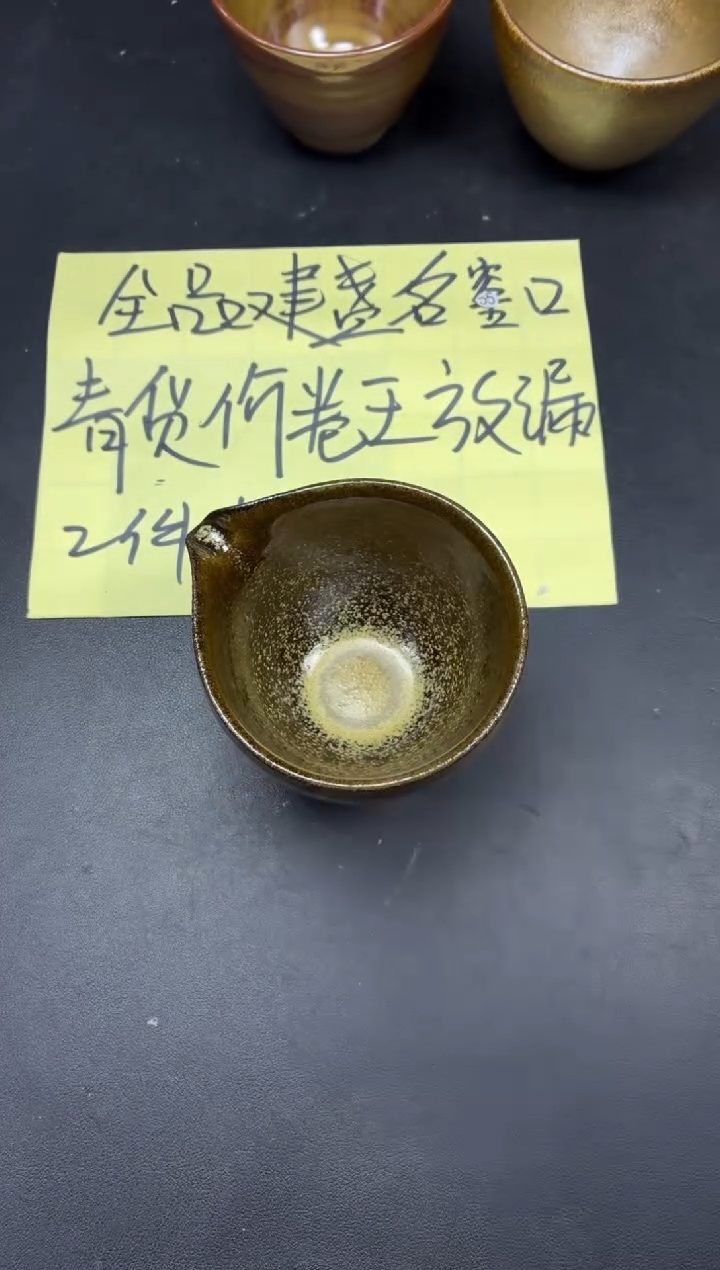 全品建盏名窑口
青货价卷王放漏
2件